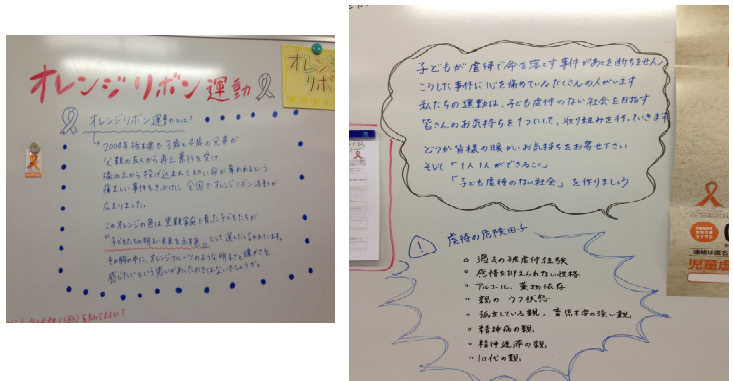 オレンジリボン運動
オレンジリボン
オレンジリボン運動とは?
2004年栃木県で3歳と4歳の兄弟が
父親の友人から再三暴行を受け、
橋の上から投げ込まれて幼い命が奪われるという
痛ましい事件をきっかけに全国でオレンジリボン活動が
広まりました。
このオレンジの色は里親家庭で育った子どもたちが
"子どもたちの明るい未来を示す色"として選んだと言われています。
その胸の中に、オレンジフルーツのような明るさと暖かさを
感じたいという思いがあったのではないでしょうか。
(SBS)を知ってますか?
子どもが虐待で命を落とす事件があとを断ちません
こうした事件に心を痛めているたくさんの人がいます
私たちの運動は、子ども虐待のない社会を目指す
皆さんのお気持ちを1つにして、取り組みを行っていきます
どうか皆様の暖かいお気持ちをお寄せ下さい
そして「1人1人ができること」
「子ども虐待のない社会」を作りましょう
1 虐待の危険因子
過去の被虐待経験
感情を抑えられない性格
アルコール、薬物依存
親のうつ状態
孤立している親、育児不安の強い親
精神病の親
精神遅滞の親
10代の親
児童虐